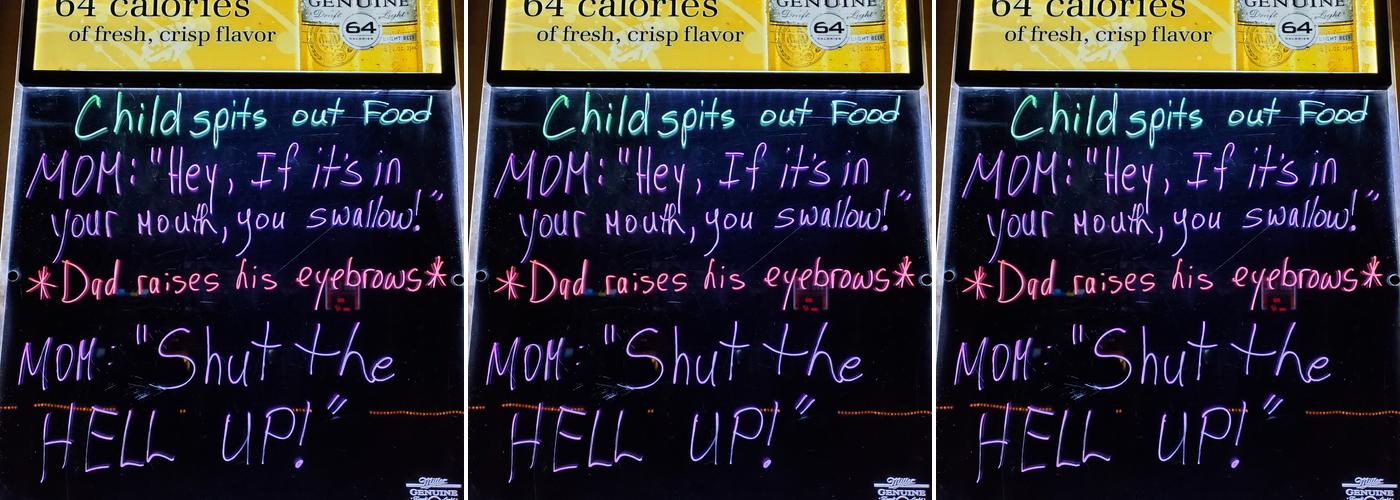 64 calories
of fresh, crisp flavor
GENUINE
Draft Light
64
CALORIES
Child spits out Food
MOM: "Hey, If it's in
your Mouth, you swallow!"
*Dad raises his eyebrows*
MOM: "Shut the
HELL UP!"
Miller
GENUINE
64 calories
of fresh, crisp flavor
GENUINE
Draft Light
64
CALORIES
Child spits out Food
MOM: "Hey, If it's in
your Mouth, you swallow!"
*Dad raises his eyebrows*
MOM: "Shut the
HELL UP!"
Miller
GENUINE
64 calories
of fresh, crisp flavor
GENUINE
Draft Light
64
CALORIES
Child spits out Food
MOM: "Hey, If it's in
your Mouth, you swallow!"
*Dad raises his eyebrows*
MOM: "Shut the
HELL UP!"
Miller
GENUINE